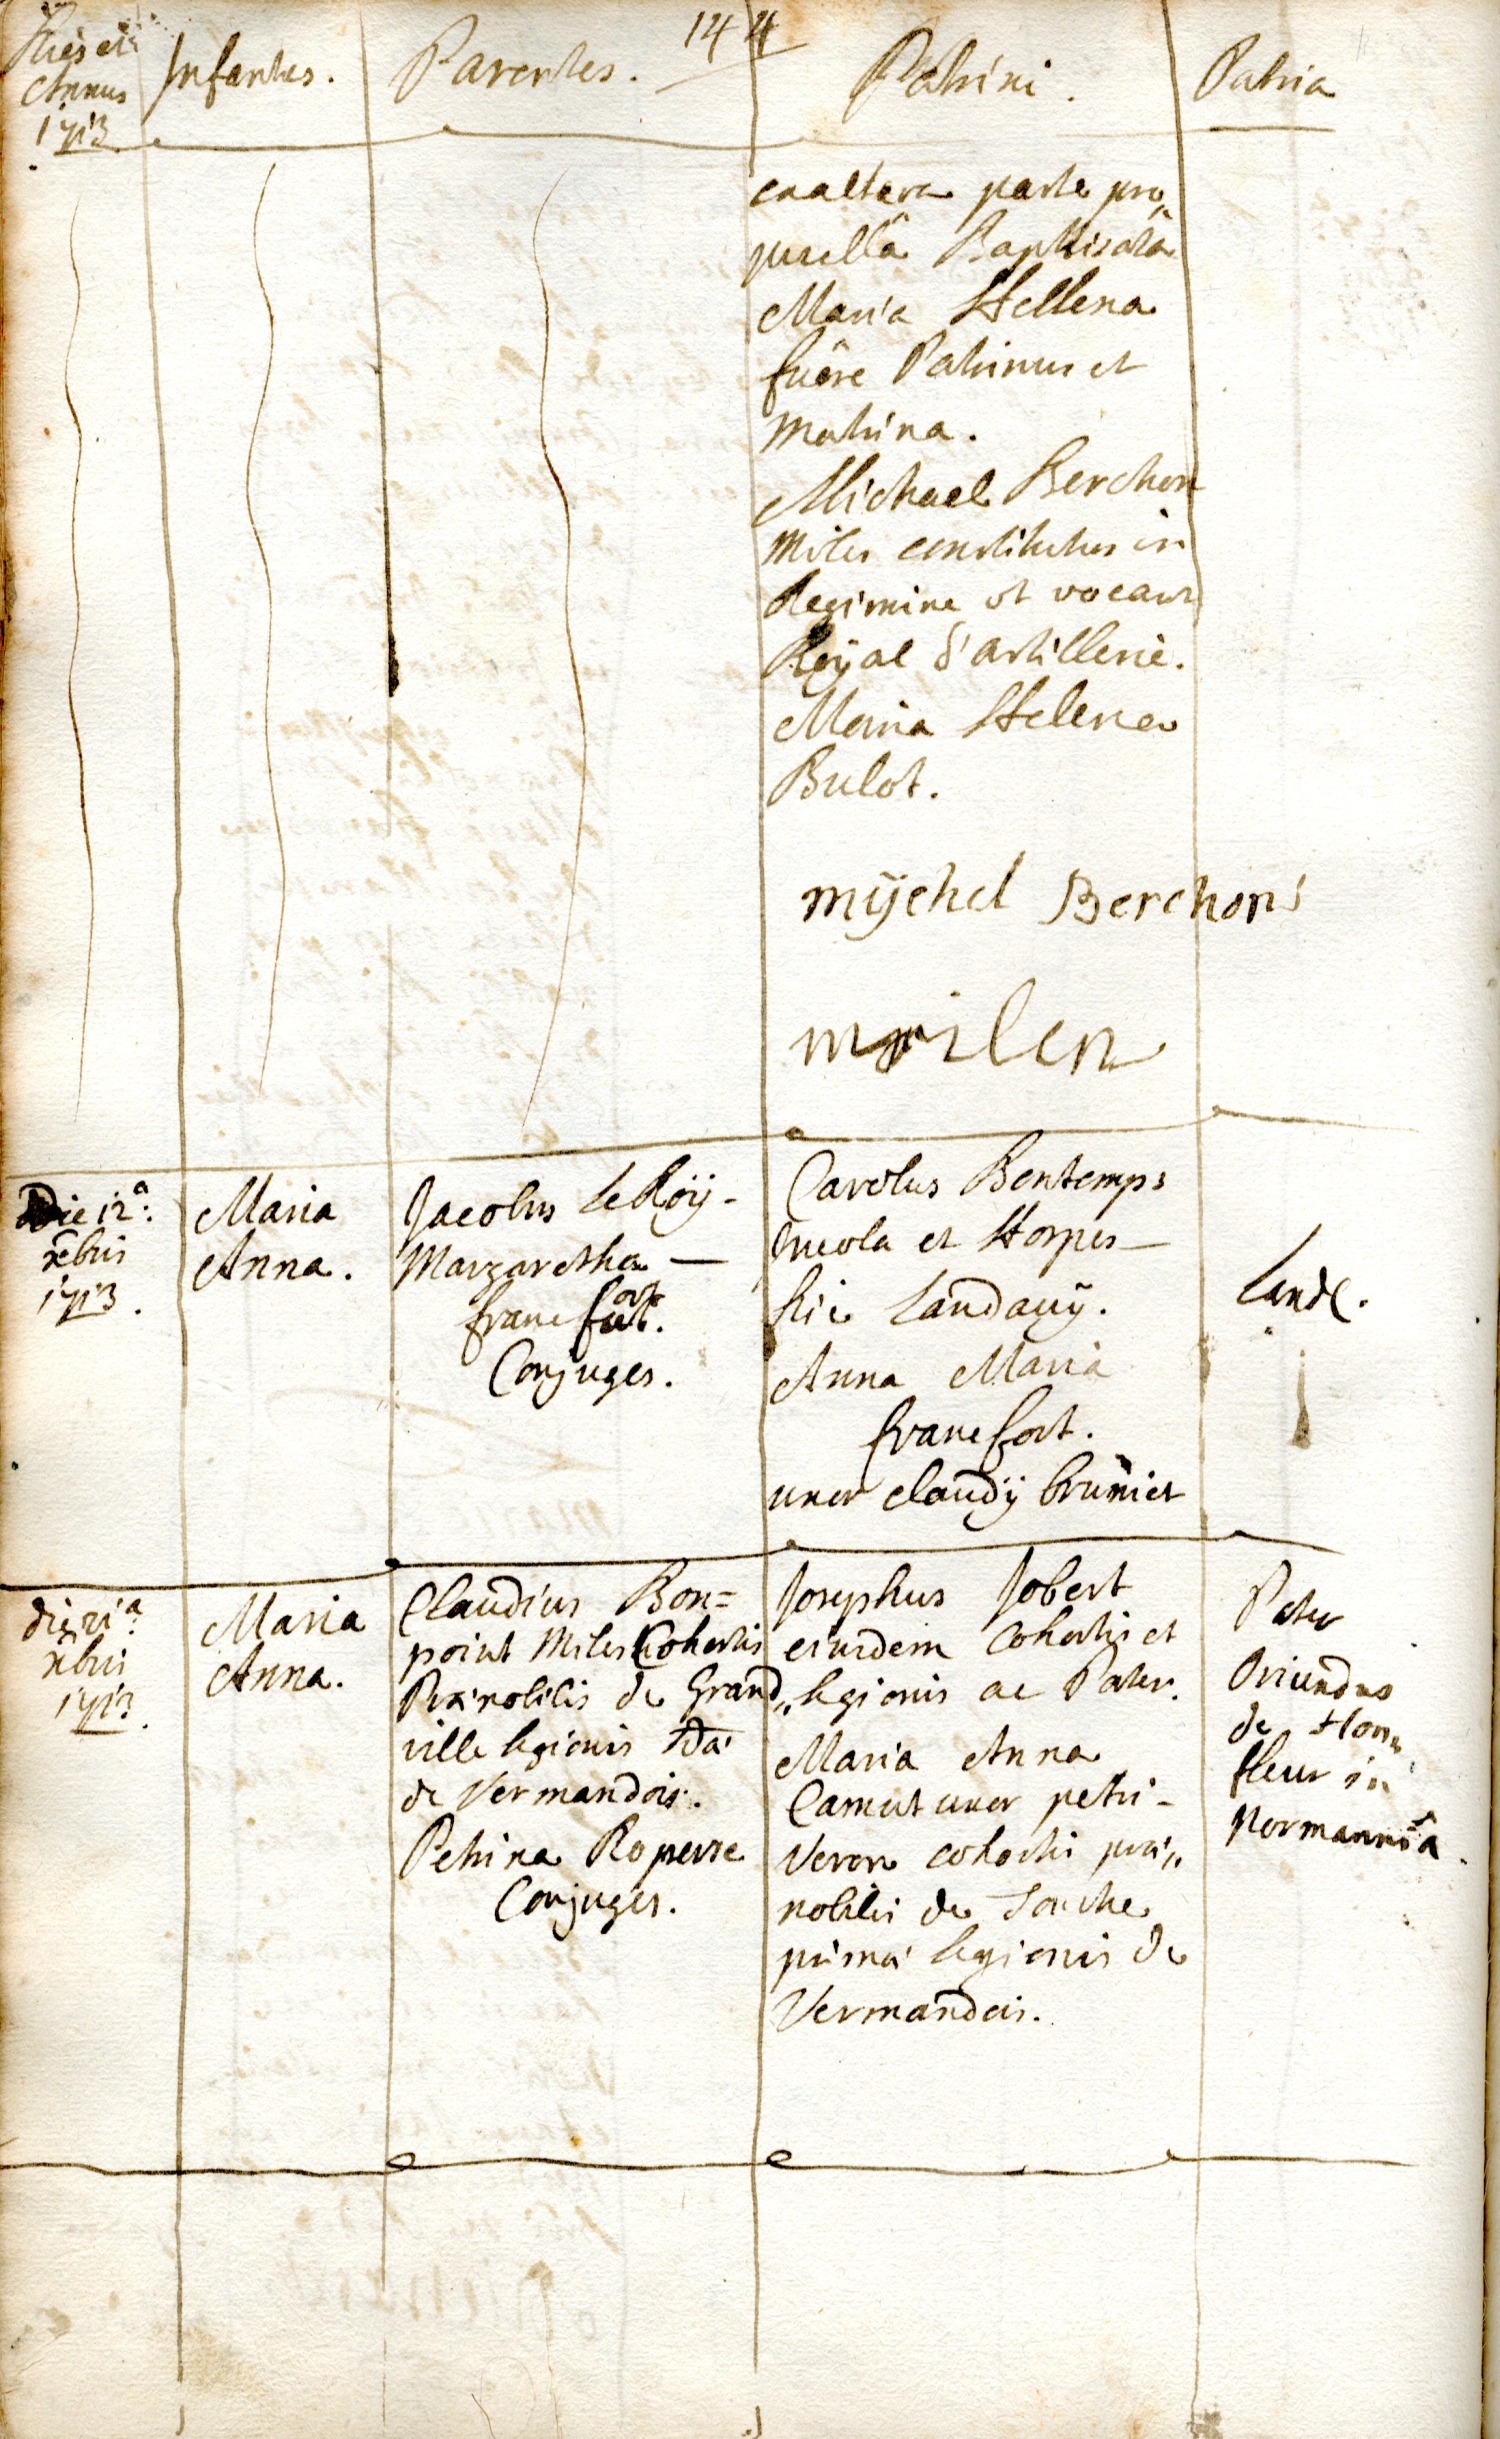 144
Dies et
Annus
1713
Infantes.
Parentes.
Patrini.
Patria
ex altera parte pro„
puellâ Baptisatâ
Maria Hellena
fuêre Patrinus et
matrina.
Michael Berchon
Miles constitutus in
Regimine ut vocant
Roÿal d'artillerie.
Maria Helena
Bulot.
mÿchel Berchon
Die 12.ª
xbris
1713.
Maria
Anna.
Jacobus le Roÿ-
Margaretha —
francfort.
Conjuges.
Carolus Bontemps
Incola et Hospes—
hic Landavÿ.
Anna Maria
francfort.
uxor claudÿ bruniet
Land.
die 21ª
xbris
1713.
Maria
Anna.
Claudius Bon=
point Miles Cohortis
Prænobilis de Grand„
ville legionis 
de Vermandois.
Petrina Roperre
Conjuges.
Josephus Jobert
eiusdem Cohortis et
legionis ac Pater.
Maria Anna
Camut uxor petri-
Veron cohortis præ„
nobilis de
primæ legionis de
Vermandois.
Pater
Oriundus
de Hon„
fleur in
Normanniâ.